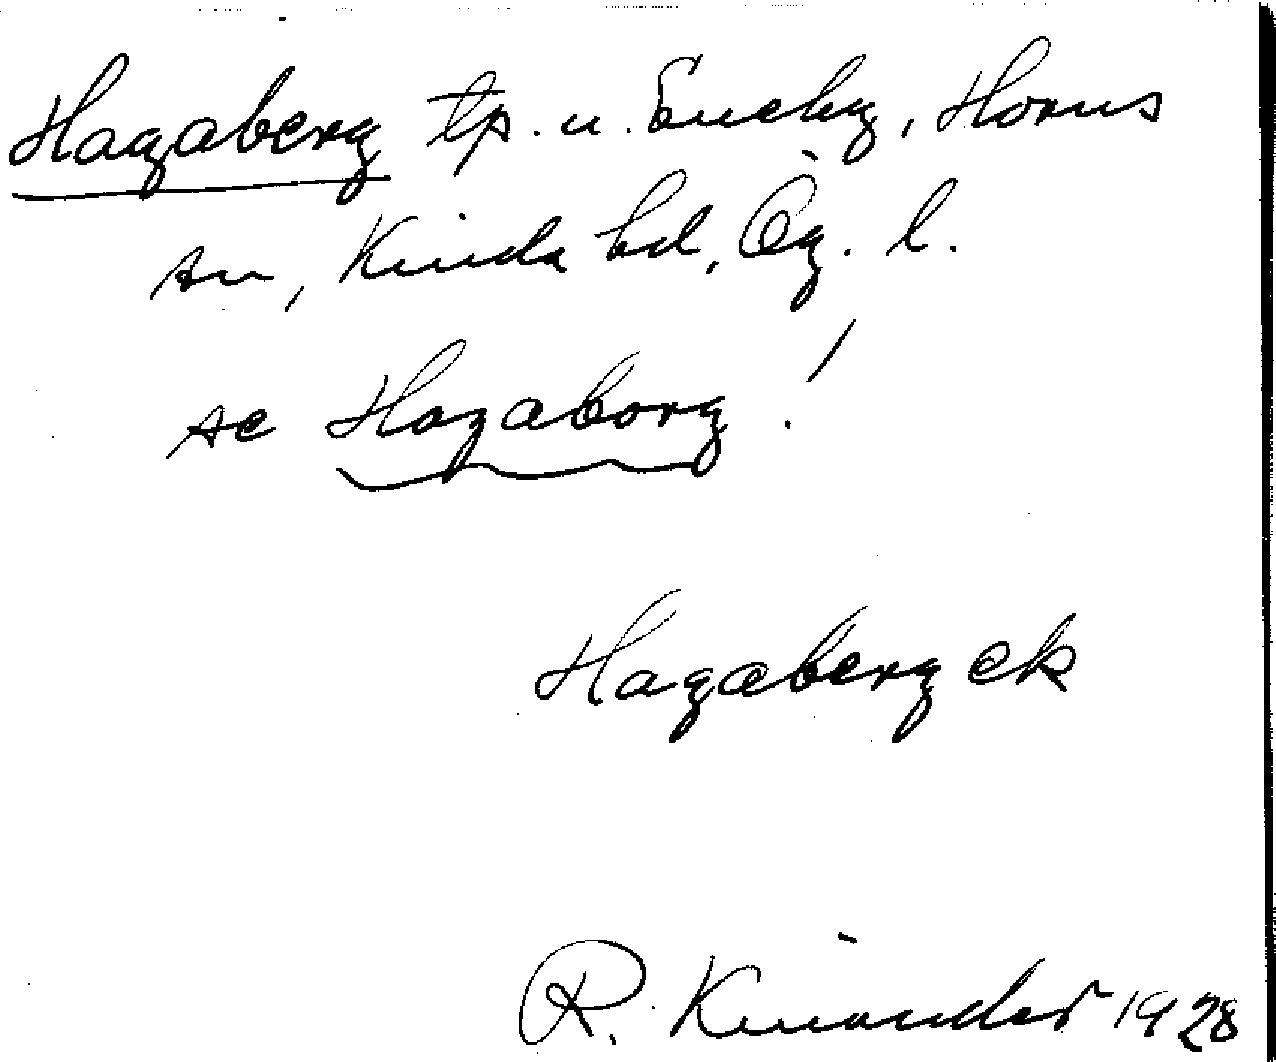 Hagaberg tp. u. Eneby, Horns
sn, Kinda hd, Ög. l.
se Hagaborg!
Hagaberg ek
R. Kinander 1928